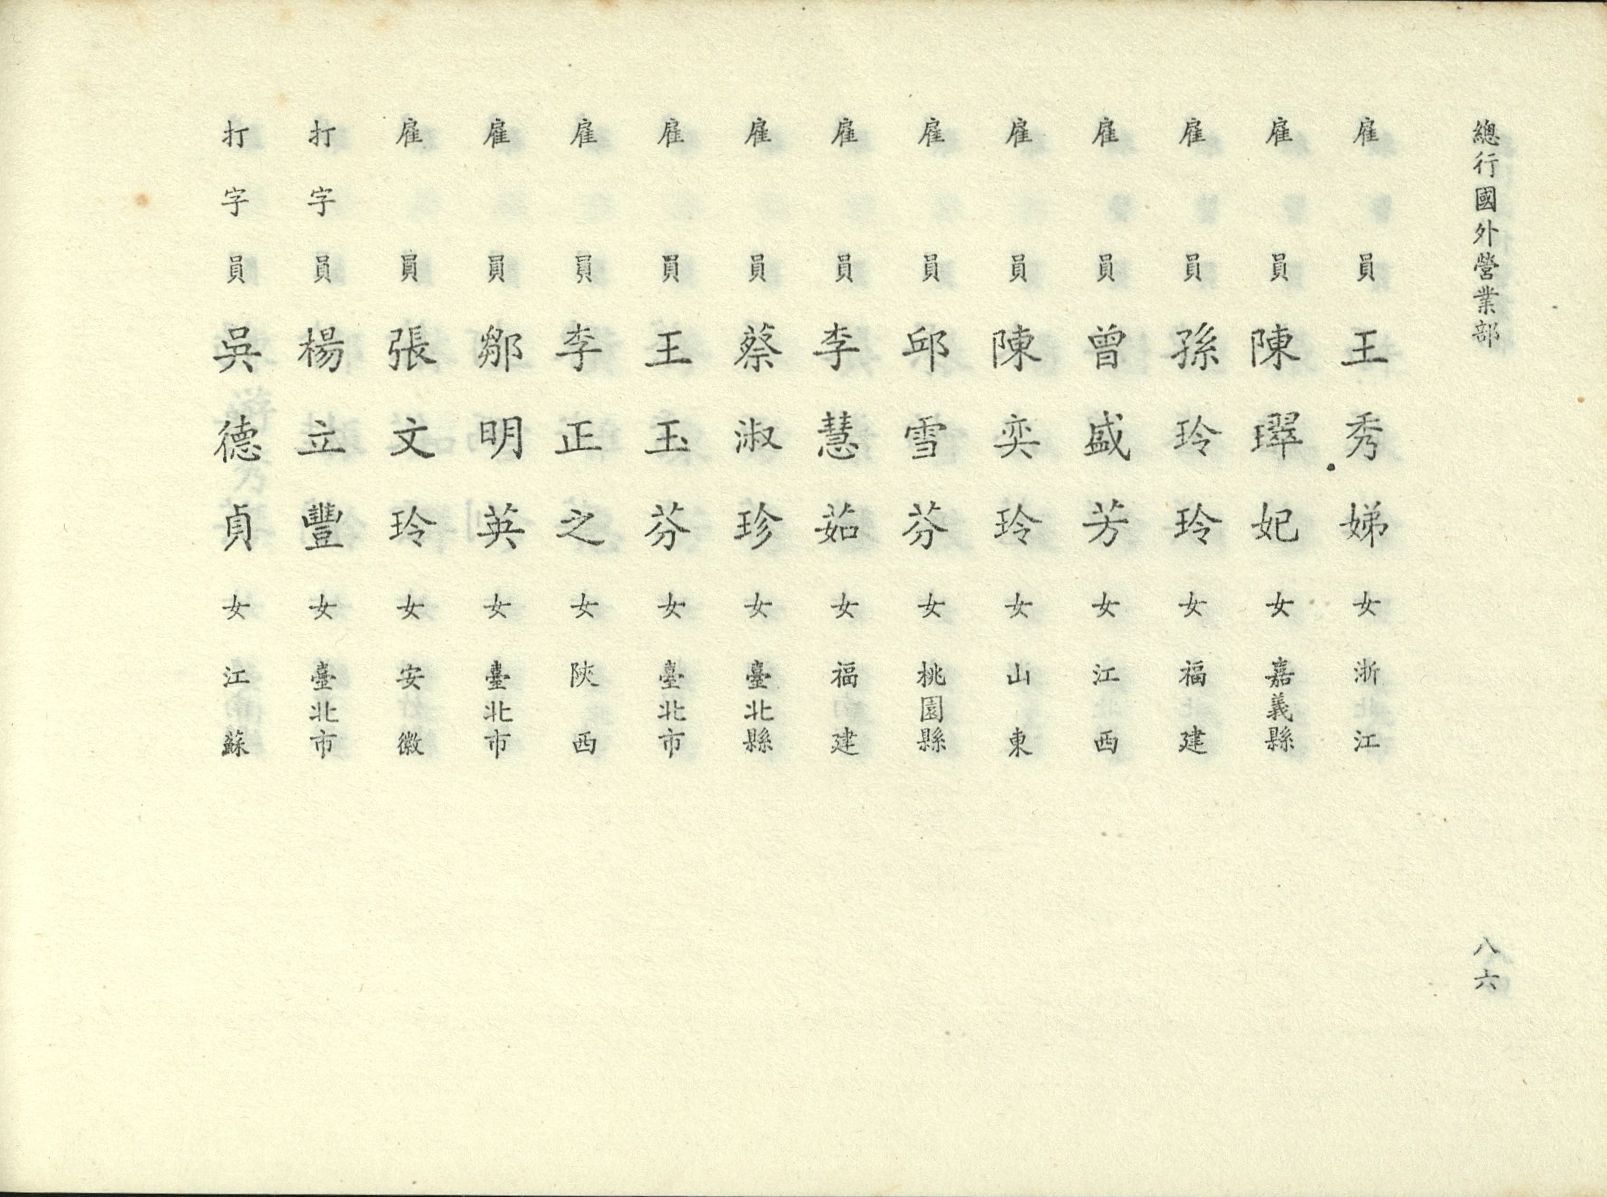 總行國外營業部 八六
雇員 王秀娣 女 浙江
雇員 陳璻妃 女 嘉義縣
雇員 孫玲玲 女 福建
雇員 曾盛芳 女 江西
雇員 陳奕玲 女 山東
雇員 邱雪芬 女 桃園縣
雇員 李慧茹 女 福建
雇員 蔡淑珍 女 臺北縣
雇員 王玉芬 女 臺北市
雇員 李正之 女 陝西
雇員 鄒明英 女 臺北市
雇員 張文玲 女 安徽
打字員 楊立豐 女 臺北市
打字員 吳德貞 女 江蘇